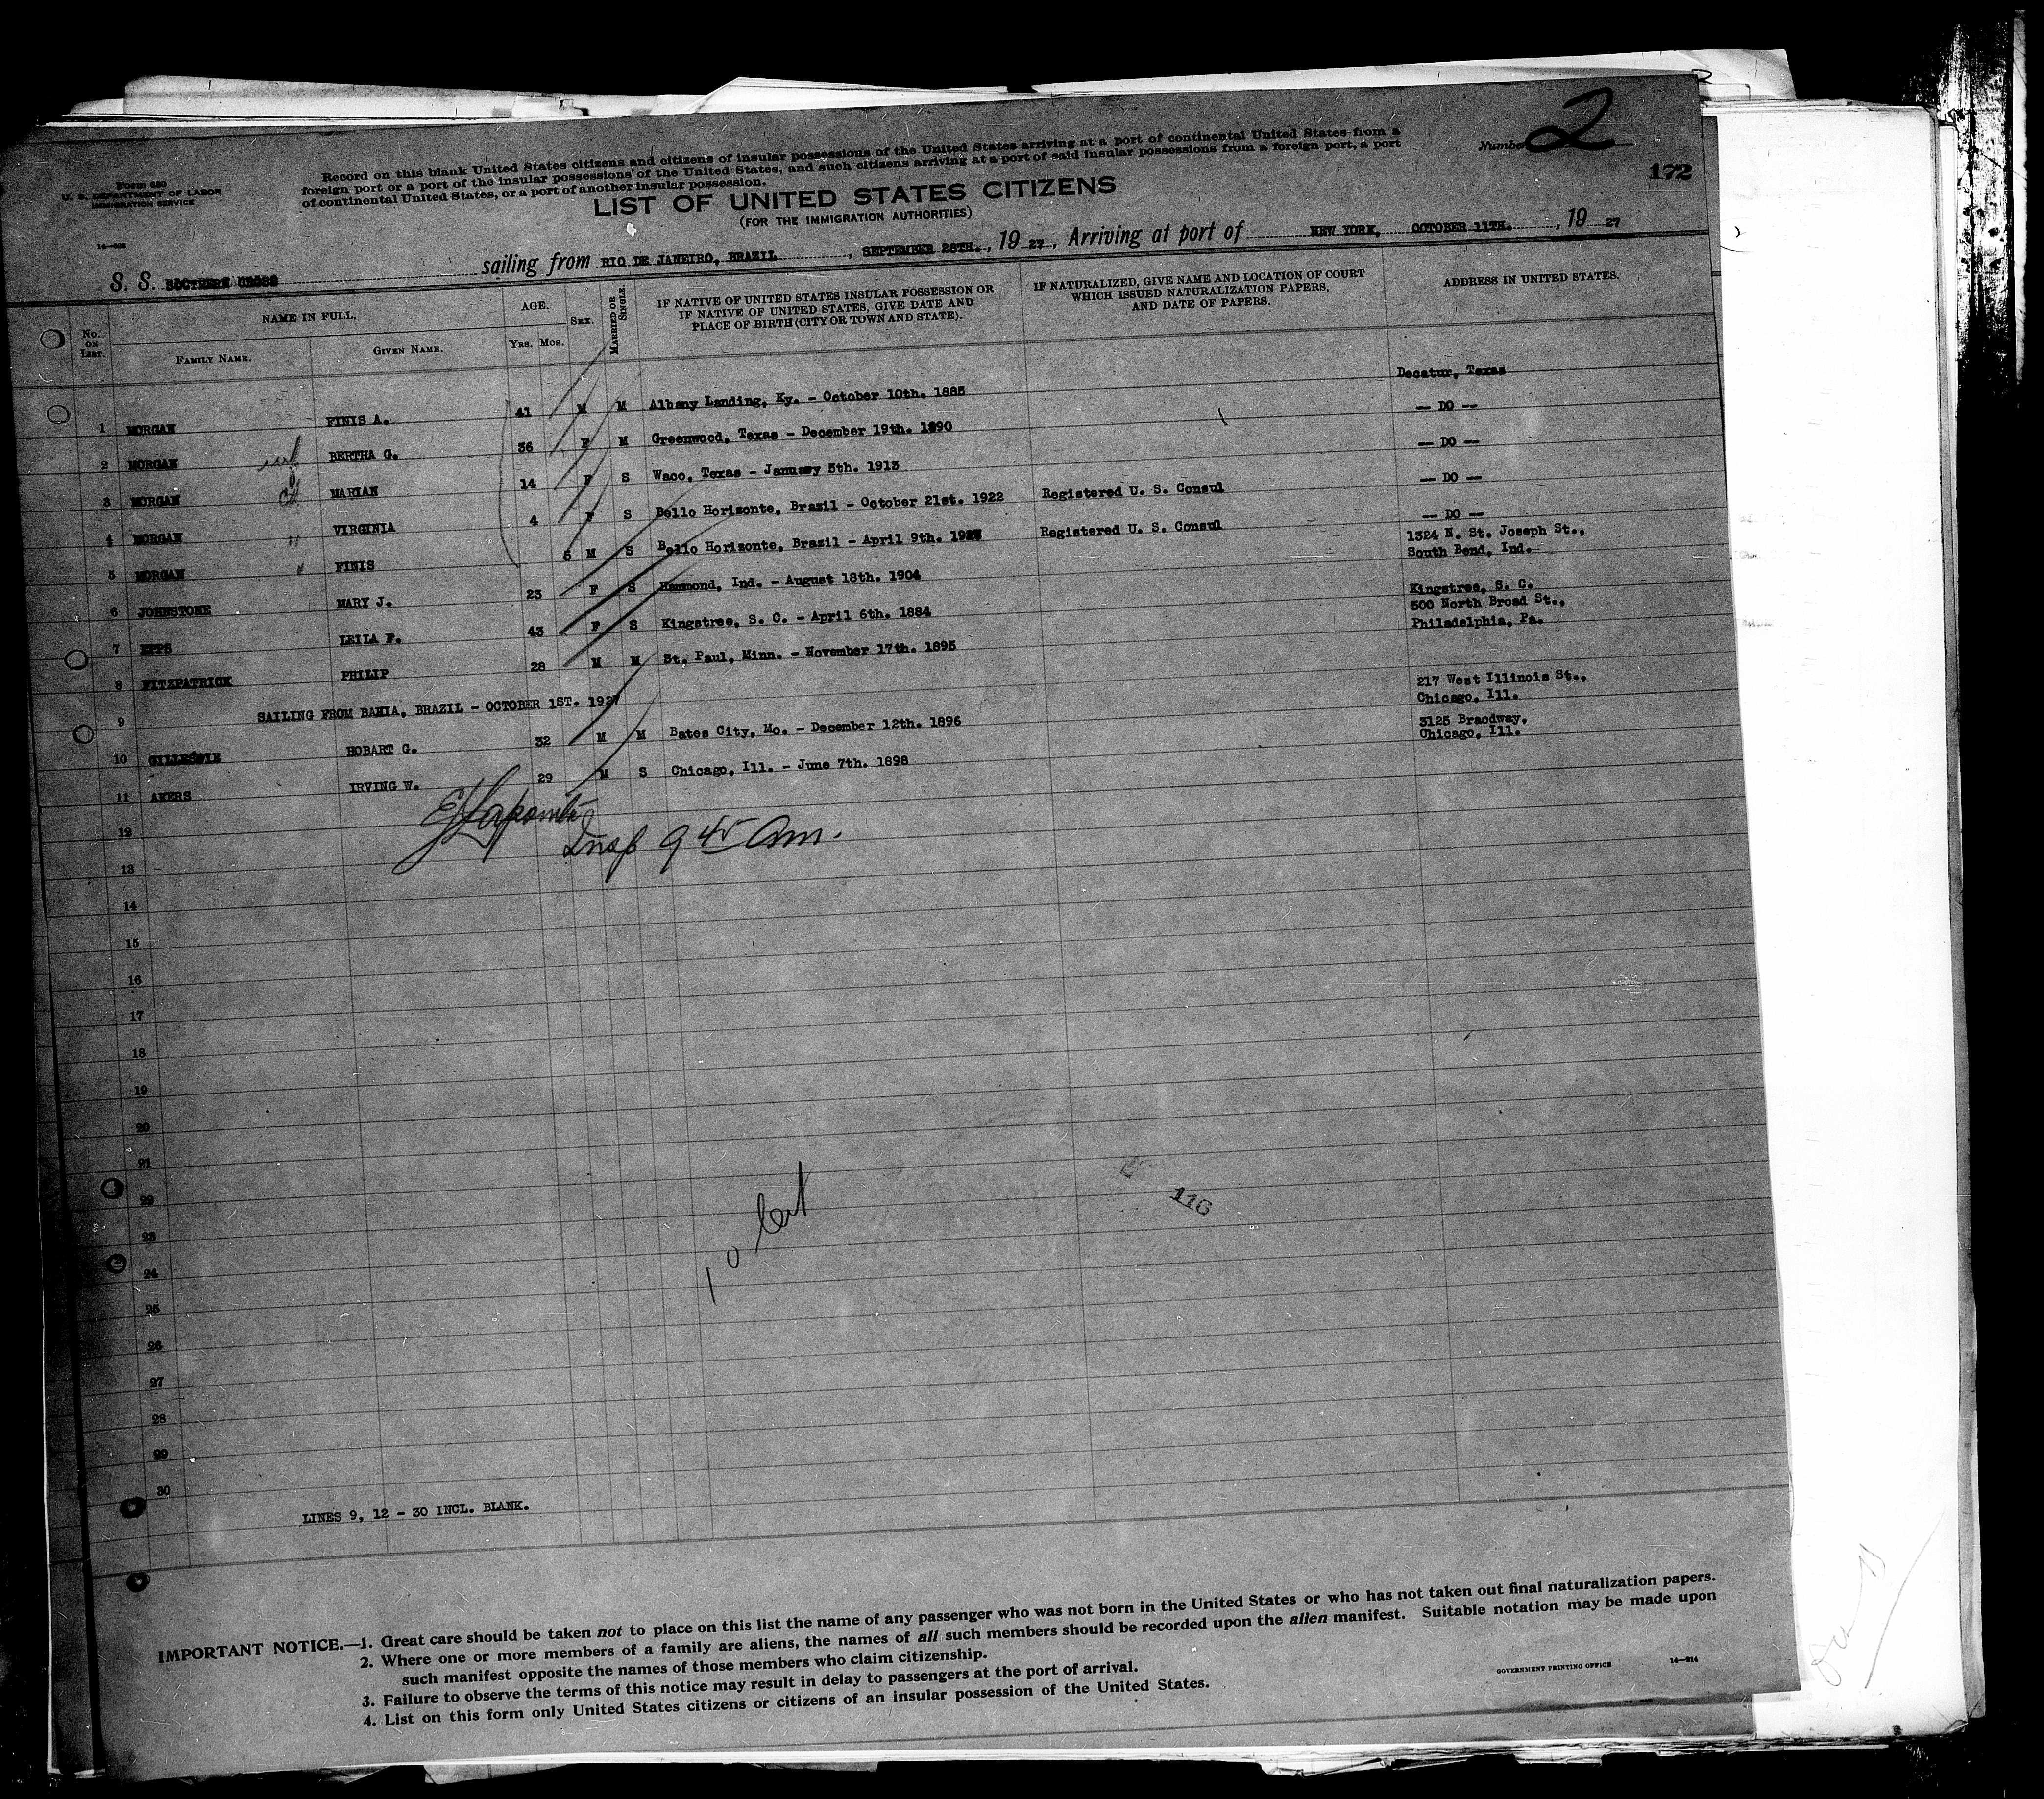 Number 2
172
Form 630
U. S. DEPARTMENT OF LABOR
IMMIGRATION SERVICE
Record on this blank United States citizens and citizens of insular possessions of the United States arriving at a port of continental United States from a
foreign port or a port of the insular possessions of the United States, and such citizens arriving at a port of said insular possessions from a foreign port, a port
of continental United States, or a port of another insular possession.
LIST OF UNITED STATES CITIZENS
(FOR THE IMMIGRATION AUTHORITIES)
S. S. SOUTHERN CROSS sailing from RIO DE JANEIRO, BRAZIL, SEPTEMBER 28TH., 19 27, Arriving at port of NEW YORK, OCTOBER 11TH., 19 27
No. ON LIST. NAME IN FULL. FAMILY NAME. GIVEN NAME. AGE. YRS. MOS. SEX. MARRIED OR SINGLE. IF NATIVE OF UNITED STATES INSULAR POSSESSION OR IF NATIVE OF UNITED STATES, GIVE DATE AND PLACE OF BIRTH (CITY OR TOWN AND STATE). IF NATURALIZED, GIVE NAME AND LOCATION OF COURT WHICH ISSUED NATURALIZATION PAPERS, AND DATE OF PAPERS. ADDRESS IN UNITED STATES.
1 MORGAN FINIS A. 41 M M Albany Landing, Ky. - October 10th. 1885 Decatur, Texas
2 MORGAN BERTHA G. 36 F M Greenwood, Texas - December 19th. 1890 -- DO --
3 MORGAN MARIAN 14 F S Waco, Texas - January 5th. 1913 -- DO --
4 MORGAN VIRGINIA 4 F S Bello Horizonte, Brazil - October 21st. 1922 Registered U. S. Consul -- DO --
5 MORGAN FINIS 5 M S Bello Horizonte, Brazil - April 9th. 1927 Registered U. S. Consul -- DO --
6 JOHNSTONE MARY J. 23 F S Hammond, Ind. - August 18th. 1904 1324 N. St. Joseph St., South Bend, Ind.
7 EPPS LEILA F. 43 F S Kingstree, S. C. - April 6th. 1884 Kingstree, S. C.
8 FITZPATRICK PHILIP 28 M M St. Paul, Minn. - November 17th. 1895 500 North Broad St., Philadelphia, Pa.
9 SAILING FROM BAHIA, BRAZIL - OCTOBER 1ST. 1927
10 GILLESPIE HOBART G. 32 M M Bates City, Mo. - December 12th. 1896 217 West Illinois St., Chicago, Ill.
11 AKERS IRVING W. 29 M S Chicago, Ill. - June 7th. 1898 3125 Braodway, Chicago, Ill.
12
Insp 9 45 Am.
13
14
15
16
17
18
19
20
21
116
22
23
24
25
26
27
28
29
30
LINES 9, 12 - 30 INCL. BLANK.
IMPORTANT NOTICE.—1. Great care should be taken not to place on this list the name of any passenger who was not born in the United States or who has not taken out final naturalization papers.
2. Where one or more members of a family are aliens, the names of all such members should be recorded upon the alien manifest. Suitable notation may be made upon
such manifest opposite the names of those members who claim citizenship.
3. Failure to observe the terms of this notice may result in delay to passengers at the port of arrival.
4. List on this form only United States citizens or citizens of an insular possession of the United States.
GOVERNMENT PRINTING OFFICE 14—814